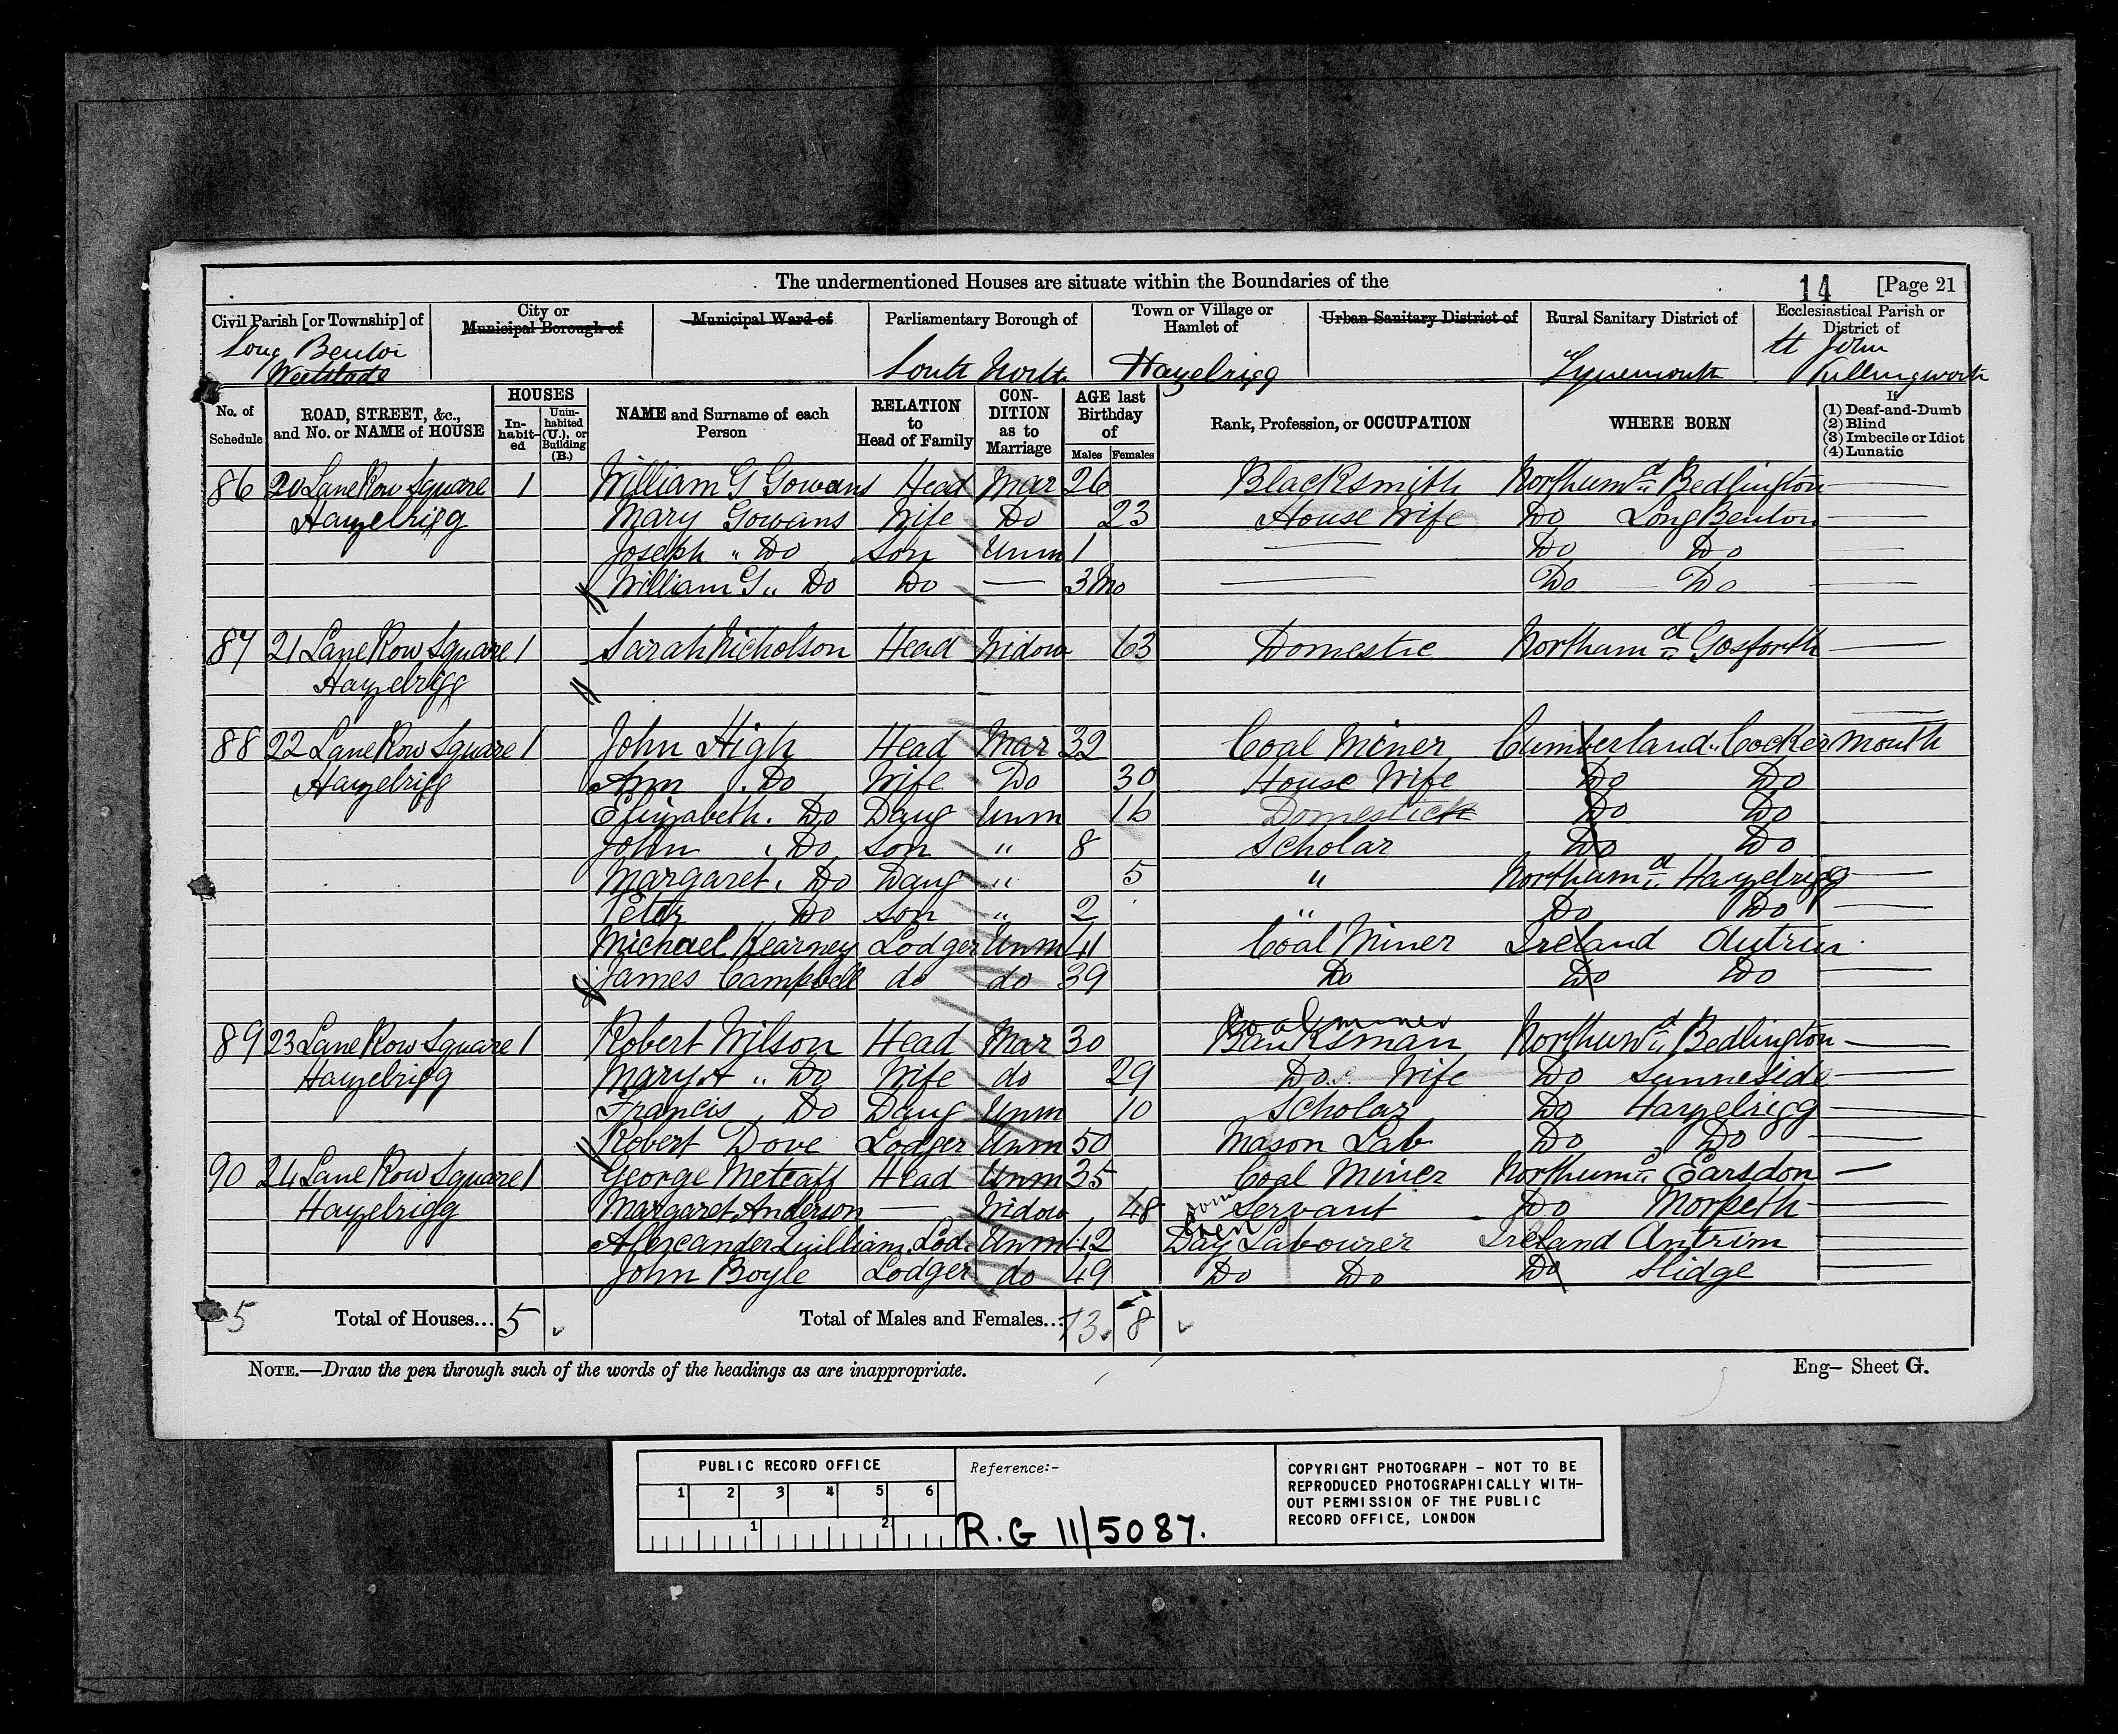 The undermentioned Houses are situate within the Boundaries of the 14 [Page 21
Civil Parish [or Township] of City or Municipal Borough of Municipal Ward of Parliamentary Borough of Town or Village or Hamlet of Urban Sanitary District of Rural Sanitary District of Ecclesiastical Parish or District of
Long Benton South North Hazelrigg Tynemouth St John
Weetslade Killingworth
No. of Schedule ROAD, STREET, &c., and No. or NAME of HOUSE HOUSES In-habit-ed Unin-habited (U.), or Building (B.) NAME and Surname of each Person RELATION to Head of Family CON-DITION as to Marriage AGE last Birthday of Males Females Rank, Profession, or OCCUPATION WHERE BORN If (1) Deaf-and-Dumb (2) Blind (3) Imbecile or Idiot (4) Lunatic
86 20 Lane Row Square 1 William G Gowans Head Mar 26 Blacksmith Northumd Bedlington
Hazelrigg Mary Gowans Wife Do 23 House Wife Do Long Benton
Joseph " Do Son Unm 1 Do Do
William G " Do Do — 3 Mo Do Do
87 21 Lane Row Square 1 Sarah Nicholson Head Widow 63 Domestic Northumd Gosforth
Hazelrigg
88 22 Lane Row Square 1 John High Head Mar 32 Coal Miner Cumberland Cockermouth
Hazelrigg Ann Do Wife Do 30 House Wife Do Do
Elizabeth Do Daug Unm 16 Domestick Do Do
John Do Son " 8 Scholar Do Do
Margaret Do Daug " 5 " Northumd Hazelrigg
Peter Do Son " 2 " Do Do
Michael Kearney Lodger Unm 41 Coal Miner Ireland Antrim
James Campbell do do 39 Do Do Do
Coal miner
89 23 Lane Row Square 1 Robert Wilson Head Mar 30 Banksman Northumd Bedlington
Hazelrigg Mary A " Do Wife do 29 Do Wife Do Sunneside
Francis Do Daug Unm 10 Scholar Do Hazelrigg
Robert Dove Lodger Unm 50 Mason Lab Do Do
90 24 Lane Row Square 1 George Metcalf Head Unm 35 Coal Miner Northumd Earsdon
Hazelrigg Margaret Anderson — Widow 48 Dom Servant Do Morpeth
Alexander Unm 42 Day Labourer Ireland Antrim
John Boyle Lodger do 49 Do Do Do Slidge
5 Total of Houses... 5 Total of Males and Females... 13 8
NOTE.—Draw the pen through such of the words of the headings as are inappropriate. Eng– Sheet G.
PUBLIC RECORD OFFICE
1 2 3 4 5 6
1 2
Reference:-
R.G 11/5087.
COPYRIGHT PHOTOGRAPH – NOT TO BE
REPRODUCED PHOTOGRAPHICALLY WITH-
OUT PERMISSION OF THE PUBLIC
RECORD OFFICE, LONDON